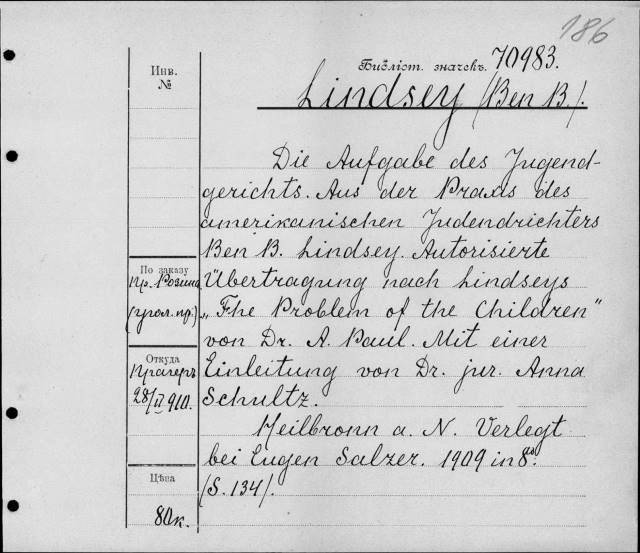 186
Библіот. значекъ. 70983.
Инв.
№
Lindsey /Ben B./.
Die Aufgabe des Jugend-
gerichts. Aus der Praxis des
amerikanischen Judendrichters
Ben B. Lindsey. Autorisierte
По заказу
пр. Розина
(угол. пр.)
Übertragung nach Lindseys
„The Problem of the Children"
von Dr. A. Paul. Mit einer
Откуда
Прагеръ
28/II 910.
Einleitung von Dr. jur. Anna
Schultz.
Heilbronn a. N. Verlegt
bei Eugen Salzer. 1909 in 8º.
Цѣна
80к.
/S. 134/.